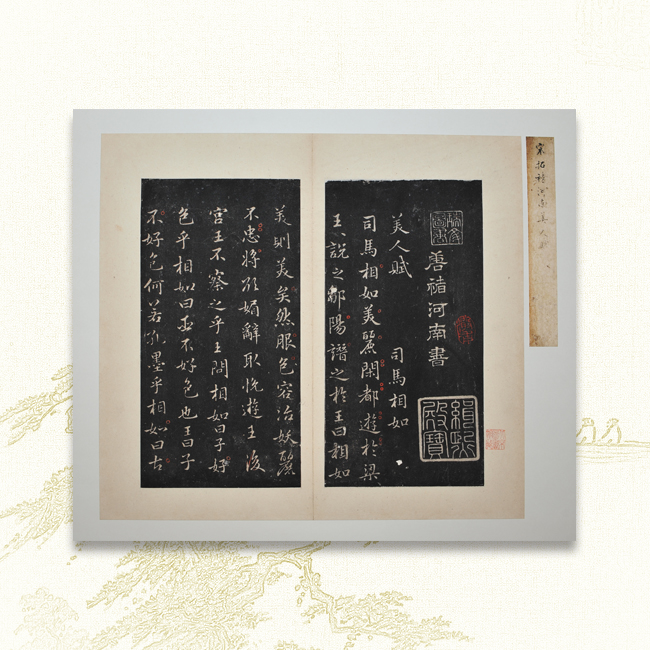 宋拓褚河南美人賦
唐褚河南書
緝熙殿寶
美人賦
司馬相如
司馬相如美麗閑都遊於梁
王〻說之鄒陽譖之於王曰相如
美則美矣然服色容冶妖麗
不忠將欲媚辭取悅遊王後
宮王不察之乎王問相如曰子好
色乎相如曰臣不好色也王曰子
不好色何若孔墨乎相如曰古